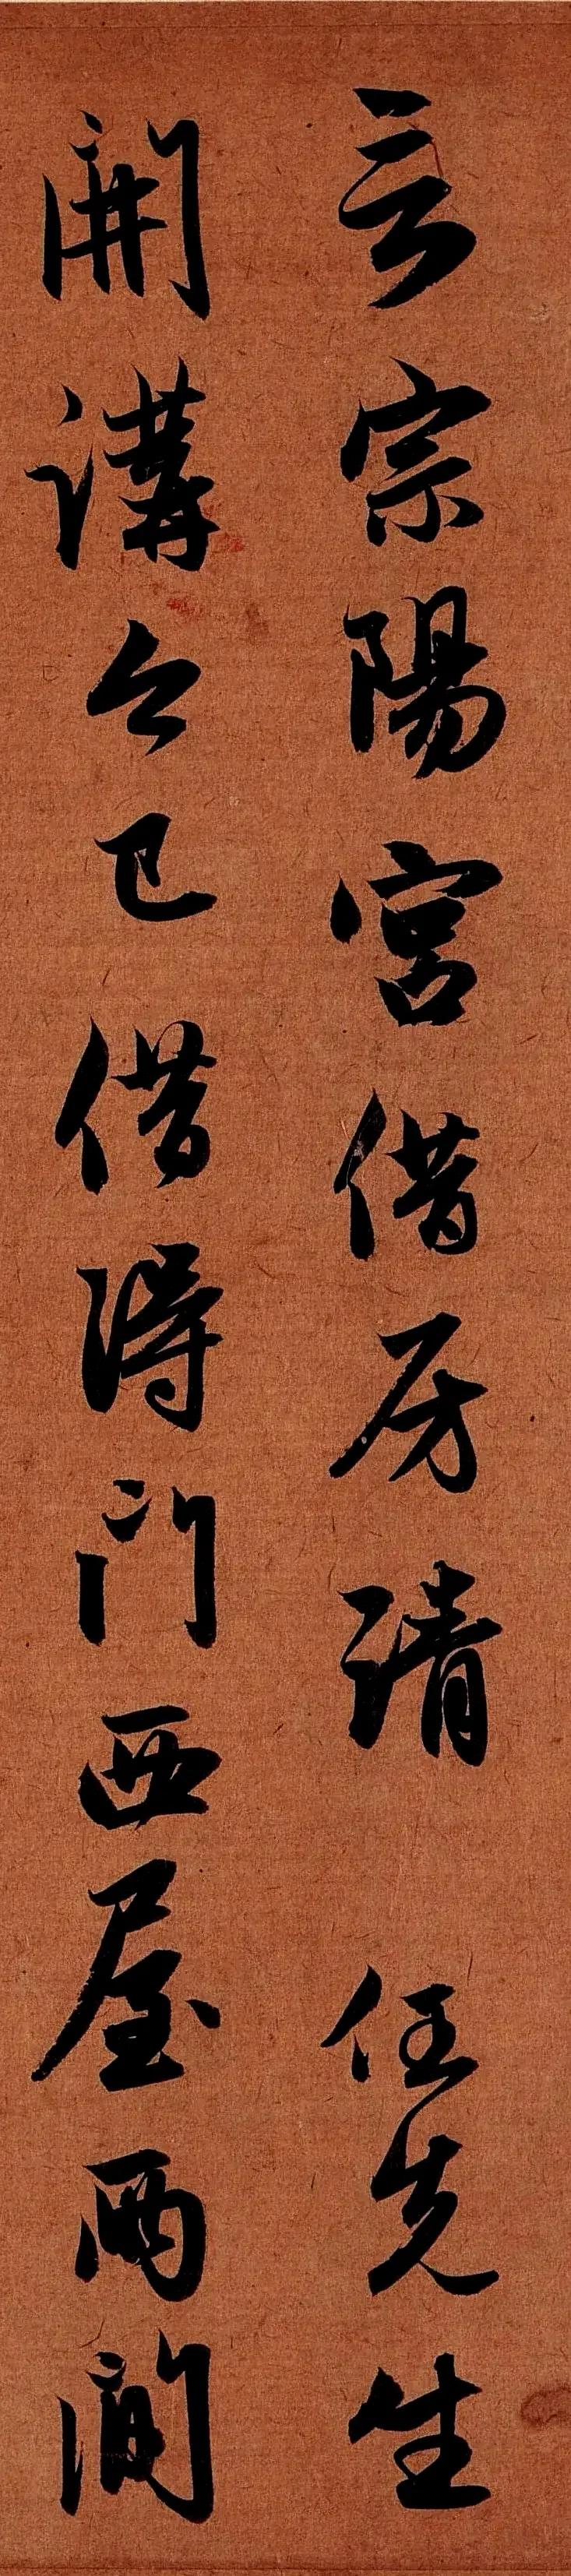 言宗陽宮借房請任先生
開講今已借得門西屋兩間